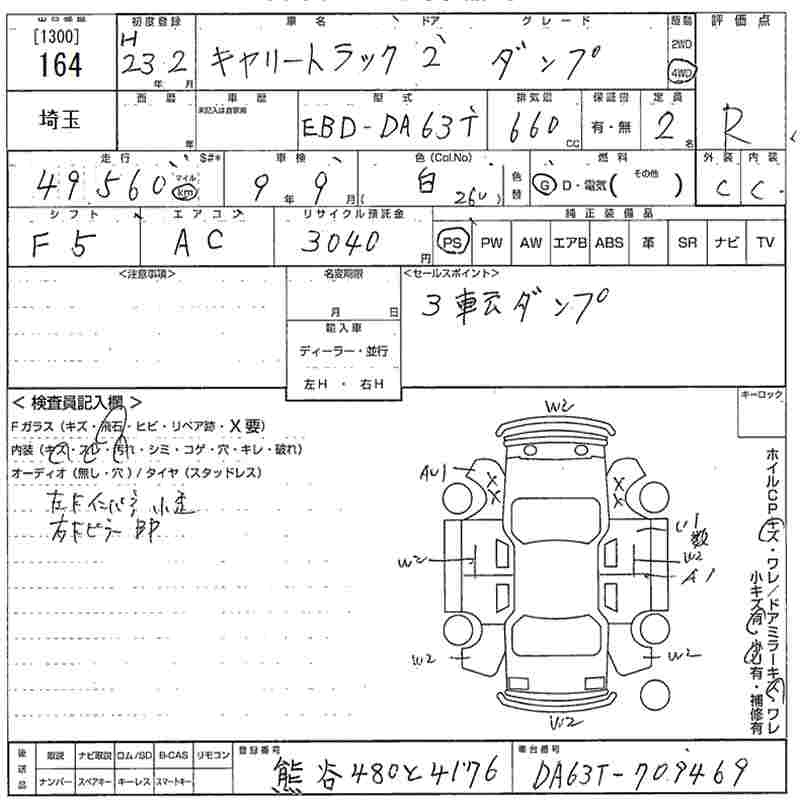 [1300]
164
埼玉
初度登録 車名 ドア グレード 駆動 評価点
H
23 年 2 月 キャリートラック 2 ダンプ 2WD 4WD R
西暦 車歴 型式 排気量 保証書 定員
年 未記入は自家用 EBD-DA63T 660 CC 有・無 2 名
走行 $#* 車検 色(Col.No) 色替 燃料 外装 内装
49560 マイル km 9年 9月 白 ( 26U ) G D・電気 ( その他 ) C C
シフト エアコン リサイクル預託金 純正装備品
F5 AC 3040 円 PS PW AW エアB ABS 革 SR ナビ TV
<注意事項> 名変期限 <セールスポイント>
月 日 3転ダンプ
輸入車
ディーラー・並行
左H ・ 右H
<検査員記入欄> キーロック
Fガラス (キズ・飛石・ヒビ・リペア跡・X要)
内装 (キズ・スレ・汚れ・シミ・コゲ・穴・キレ・破れ)
オーディオ (無し・穴) / タイヤ (スタッドレス)
W2
AU1 X X X X
U1
数
W2 W2
A1
W2 W2
W2
ホイルCPキズ・ワレ/ドアミラーキズ・ワレ
小キズ有・凹有・補修有
後送品 取説 ナビ取説 ロム/SD B-CAS リモコン 登録番号 車台番号
ナンバー スペアキー キーレス スマートキー 熊谷480と4176 DA63T-709469